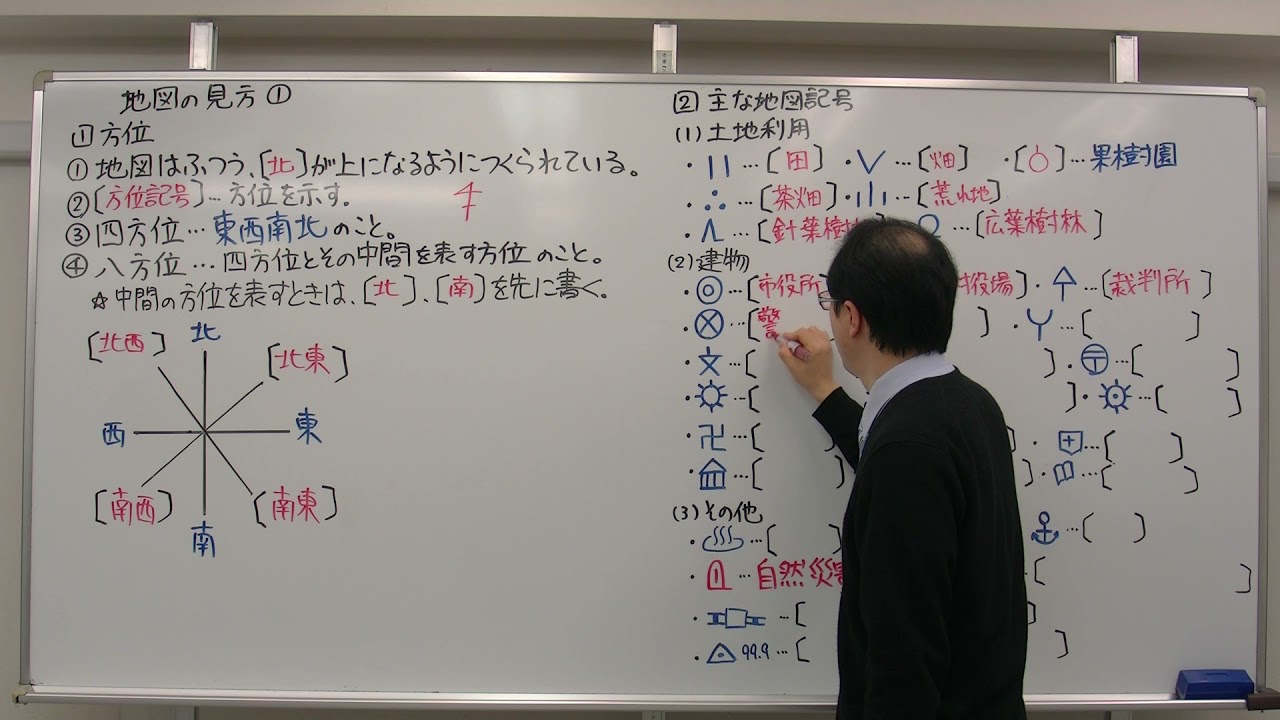 地図の見方①
1 方位
①地図はふつう、[北]が上になるようにつくられている。
②[方位記号]…方位を示す。
③四方位…東西南北のこと。
④八方位…四方位とその中間を表す方位のこと。
☆中間の方位を表すときは、[北]、[南]を先に書く。
[北西] 北 [北東]
西 東
[南西] 南 [南東]
2 主な地図記号
(1)土地利用
・ …[田] ・ …[畑] ・[ ]…果樹園
・ …[茶畑] ・ …[荒れ地]
・ …[針葉樹 …[広葉樹林]
(2)建物
・ …[市役所 役場] ・ …[裁判所]
・ …[警 ] ・ …[ ]
・ …[ ] ・ …[ ]
・ …[ ] ・ …[ ]
・卍…[ ] ・ …[ ]
・ …[ ] ・ …[ ]
(3)その他
・ …[ ] …[ ]
・ …自然災害 [ ]
・ …[ ]
・ 99.9…[ ]